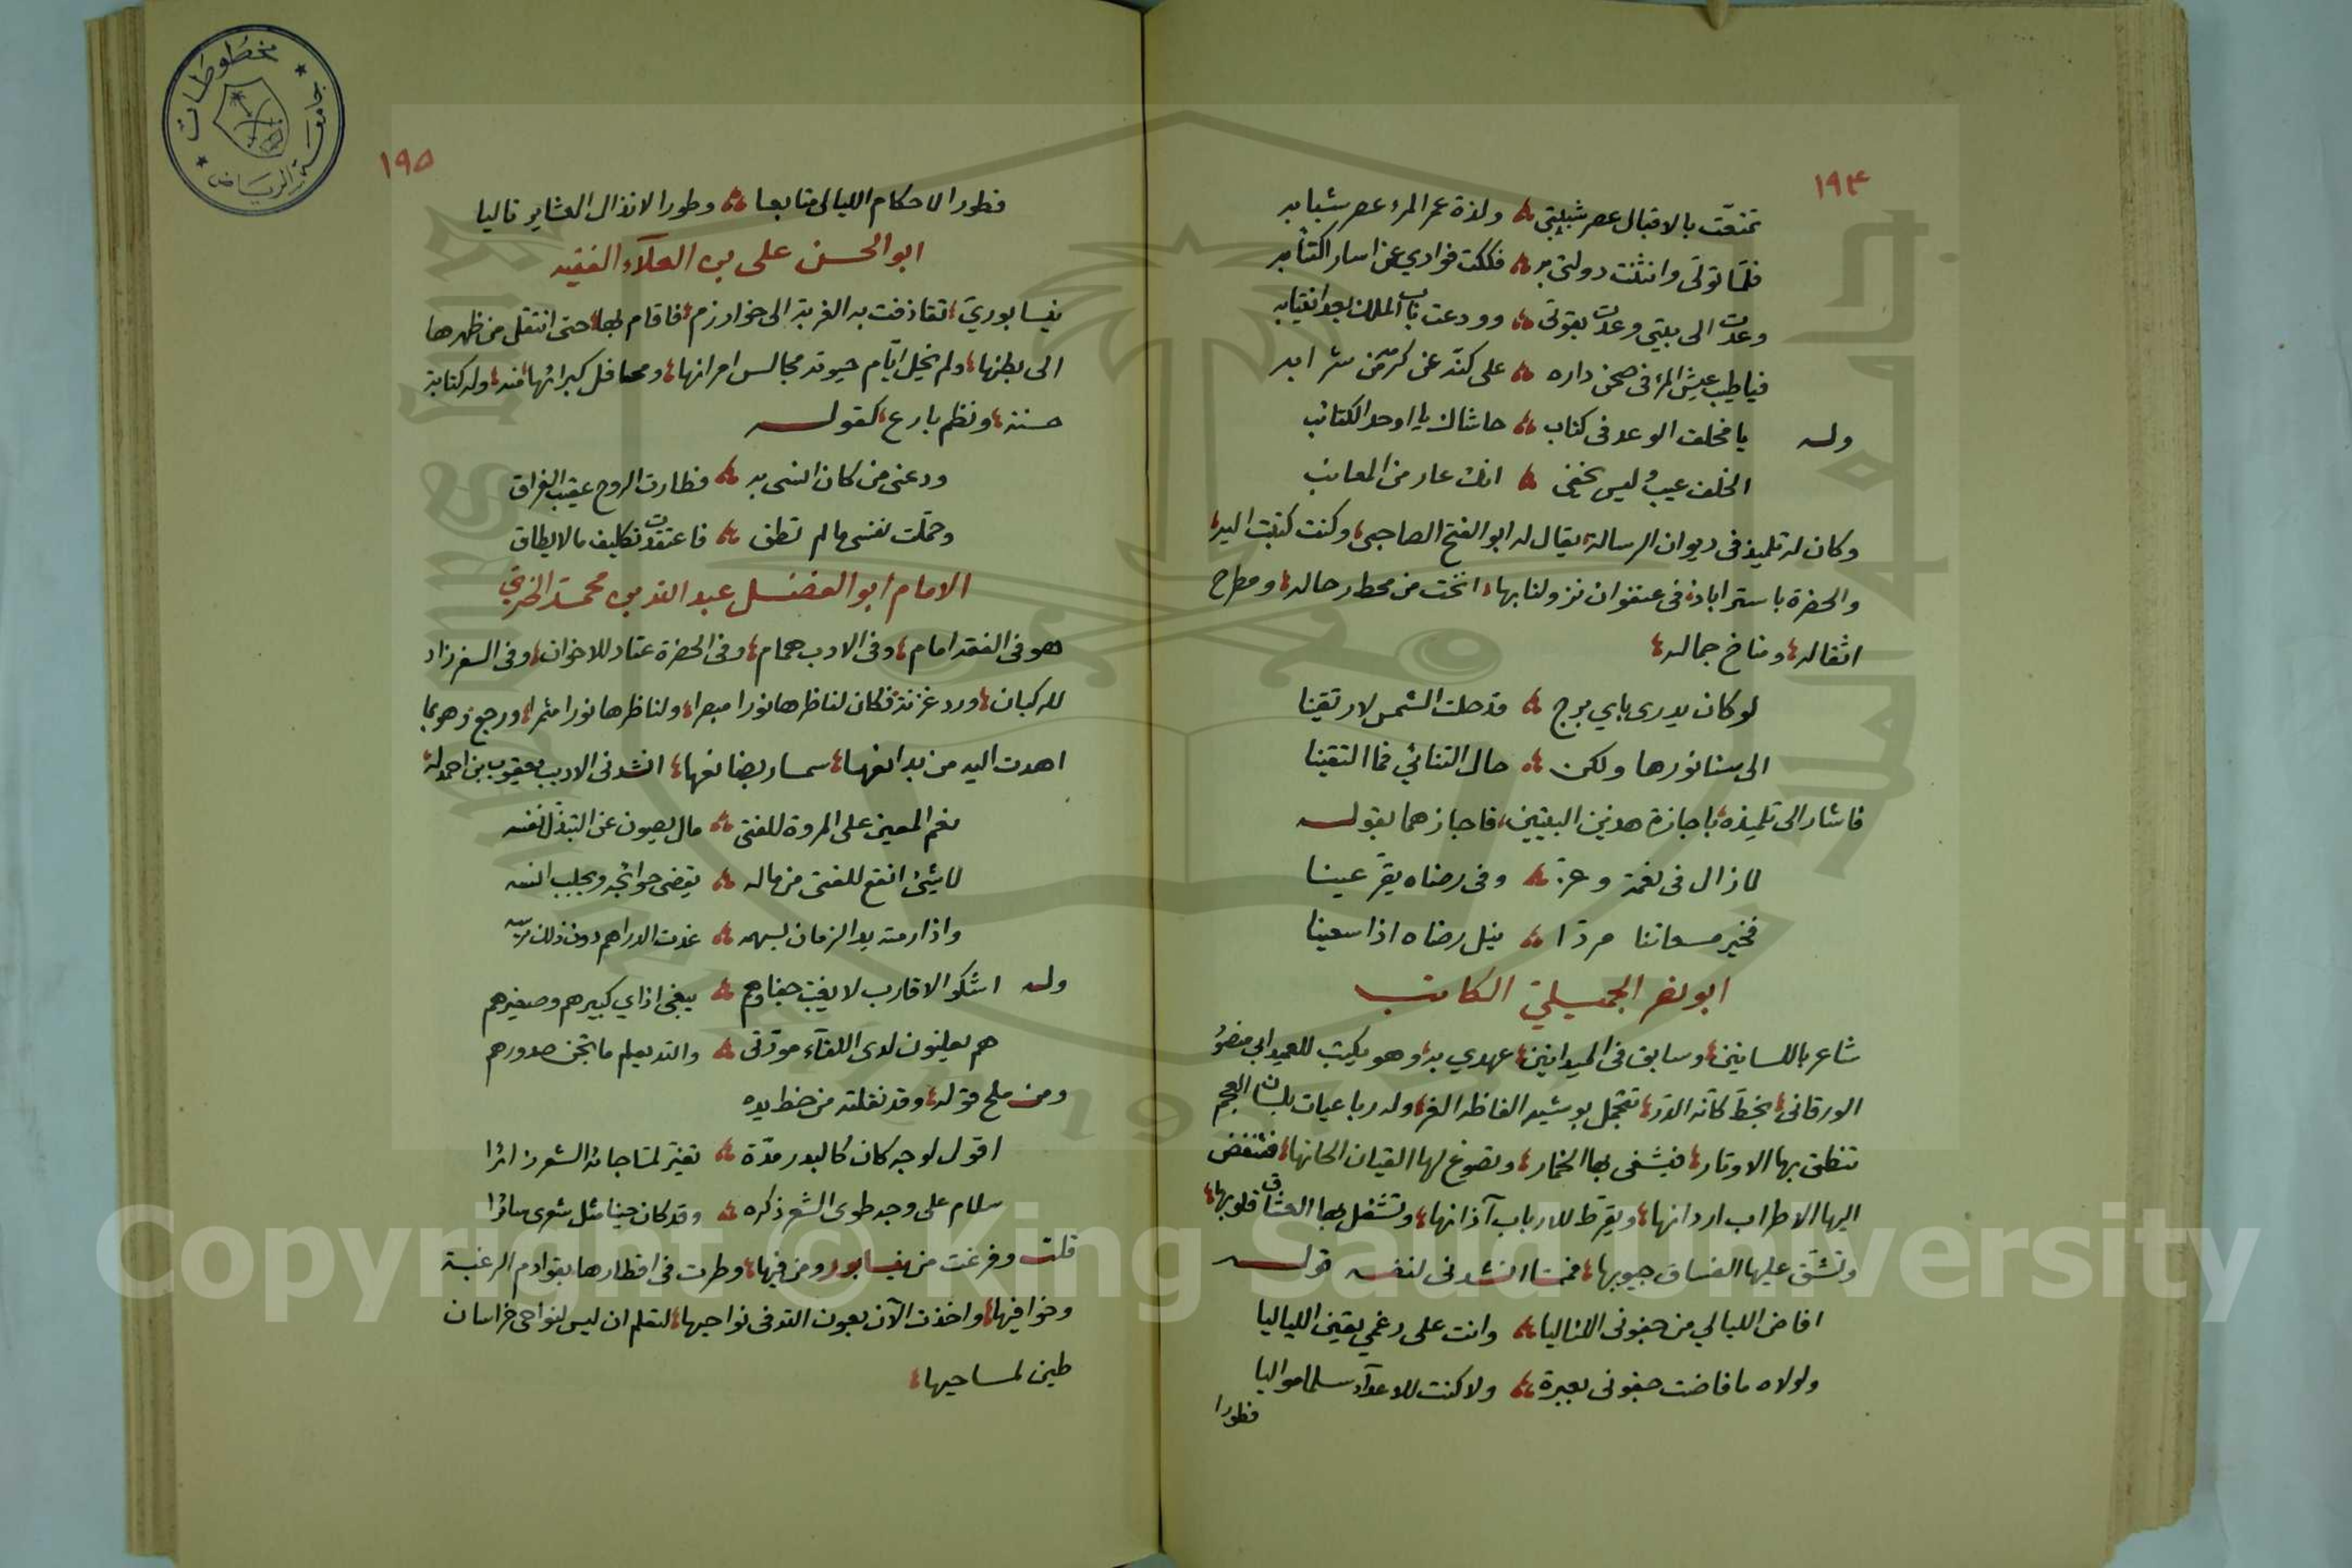 ١٩٤
تمتعّت بالاقبال عصر شبيبتي ولذة عمر المرء عصر شبابه
فلمّا تولّى وانثنت دولتي به فككت فؤادي عن اسار اكتئابه
وعدت الى بيتي وعدت بقوتى وودعت باب الملك بعد انتيابه
فياطيب عيش المرء فى صحن داره على كدّه عن كرّه من شرابه
وله يا مخلف الوعد فى كتاب حاشاك يا اوحد الكتائب
الخلف عيب وليس يخفى انك عار من المعائب
وكان له تلميذ فى ديوان الرسالة يقال له ابو الفتح الصاجبى وكنت كتبت اليه
والحضرة باستراباذ فى عنفوان نزولنا بها انخت من محط رحاله ومطرح
اثقاله ومناخ جماله
لو كان يدرى باي برج قد حلت الشمس لارتقينا
الى سنا نورها ولكن حال التنائي فما التقينا
فاشار الى تلميذه باجازة هذين البيتين فاجازهما بقوله
لا زال فى نعمة وعزّ وفى رضاه يقرّ عينا
فخير مسعاتنا مردّا نيل رضاه اذا سعينا
ابو نصر الجميلي الكاتب
شاعر باللسانين وسابق فى الميدانين عهدي به وهو يكتب للعميد ابي منصور
الورقانى بخط كأنه الدرّ تتجمل بوشيه الفاظه الغر وله رباعيات بلسان العجم
تنطق بها الاوتار فيشفى بها الخمار وتصوغ لها القيان الحانها فتنفض
اليها الاطراب اردانها ويقرّط للارباب آذانها وتشغل بها العشاق قلوبها
وتشقّ عليها الفساق جيوبها فمما انشدنى لنفسه قوله
افاض الليالي من جفونى اللئاليا وانت على رغمي بقين اللياليا
ولولاه ما فاضت جفونى بعبرة ولا كنت للاعداء سلما مواليا
فطورا
١٩٥
فطورا لاحكام الليالى متابعا وطورا لانذال العشاير تاليا
ابو الحسن على بن العلاء الفقيه
نيسابوريّ تقاذفت به الغربة الى خوارزم فاقام بها حتى انتقل من ظهرها
الى بطنها ولم يخل ايّام حيوته مجالس امرائها ومحافل كبرائها منه وله كتابة
حسنة ونظم بارع كقوله
ودعنى من كان انسى به فطارت الروح عقيب الفراق
وحمّلت نفسى ما لم تطق فاعتقدت تكليف ما لا يطاق
الامام ابو الفضل عبد الله بن محمد الخرقي
هو فى الفقه امام وفى الادب همام وفى الحضرة عتاد للاخوان وفى السفر زاد
للركبان ورد غزنة فكان لناظرها نورا مبصرا ولناظرها نورا مثمرا ورجع وهو بما
اهدت اليه من بدائعها سمسار بضائعها انشدنى الاديب يعقوب بن احمد له
نعم المعين على المروة للفتى مال يصون عن التبذّل نفسه
لا شيئ انفع للفتى من ماله يقضى حوائجه ويجلب انسه
واذا رمته يد الزمان بسهمه غدت الدراهم دون ذلك ترسه
وله اشكو الاقارب لا يغبّ جفاؤهم يبغى اذاي كبيرهم وصغيرهم
هم يعلنون لدى اللقاء مودّتى والله يعلم ما تجن صدورهم
ومن ملح قوله وقد نقلته من خط يده
اقول لوجه كان كالبدر مدّة تغيّر لمّا جائه الشعر زائرا
سلام على وجه طوى الشعر ذكره وقد كان حينا مثل شعرى سائرا
قلت وفرغت من نيسابور ومن فيها وطرت فى اقطارها بقوادم الرغبة
وخوافيها واخذت الآن بعون الله فى نواحيها لتعلم ان ليس لنواحى خراسان
طين لمساحيها
مخطوطات
جامعة الرياض
Copyright © King Saud University